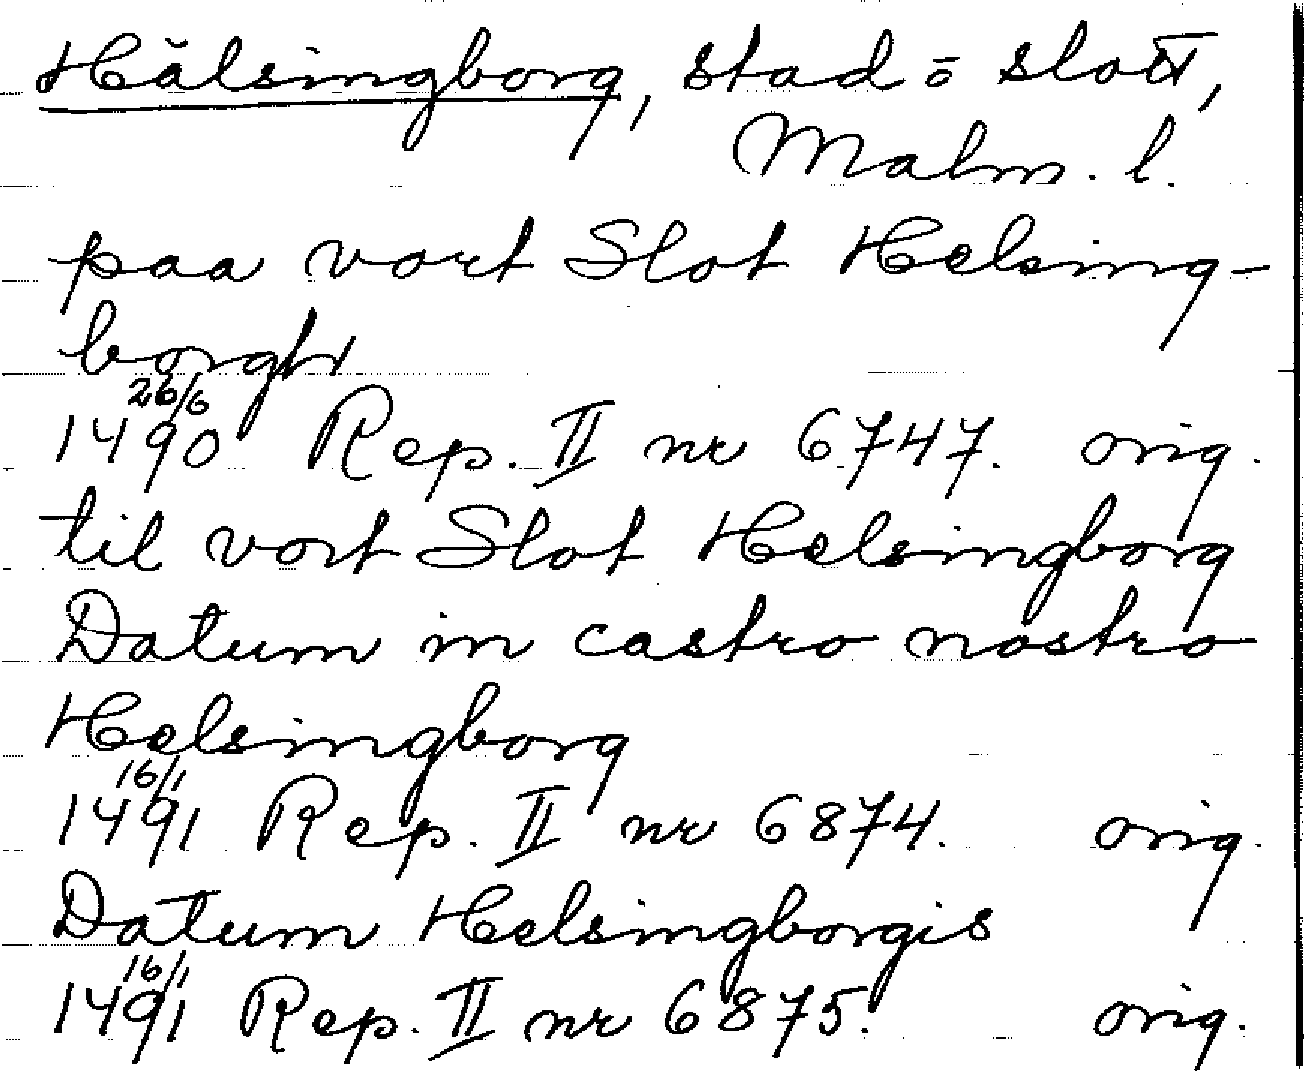 Hälsingborg, stad o slott,
Malm. l.
paa vort Slot Helsing-
borgh
26/6
1490 Rep. II nr 6747. orig.
til vort Slot Helsingborg
Datum in castro nostro
Helsingborg
16/1
1491 Rep. II nr 6874. orig.
Datum Helsingborgis
16/1
1491 Rep. II nr 6875. orig.